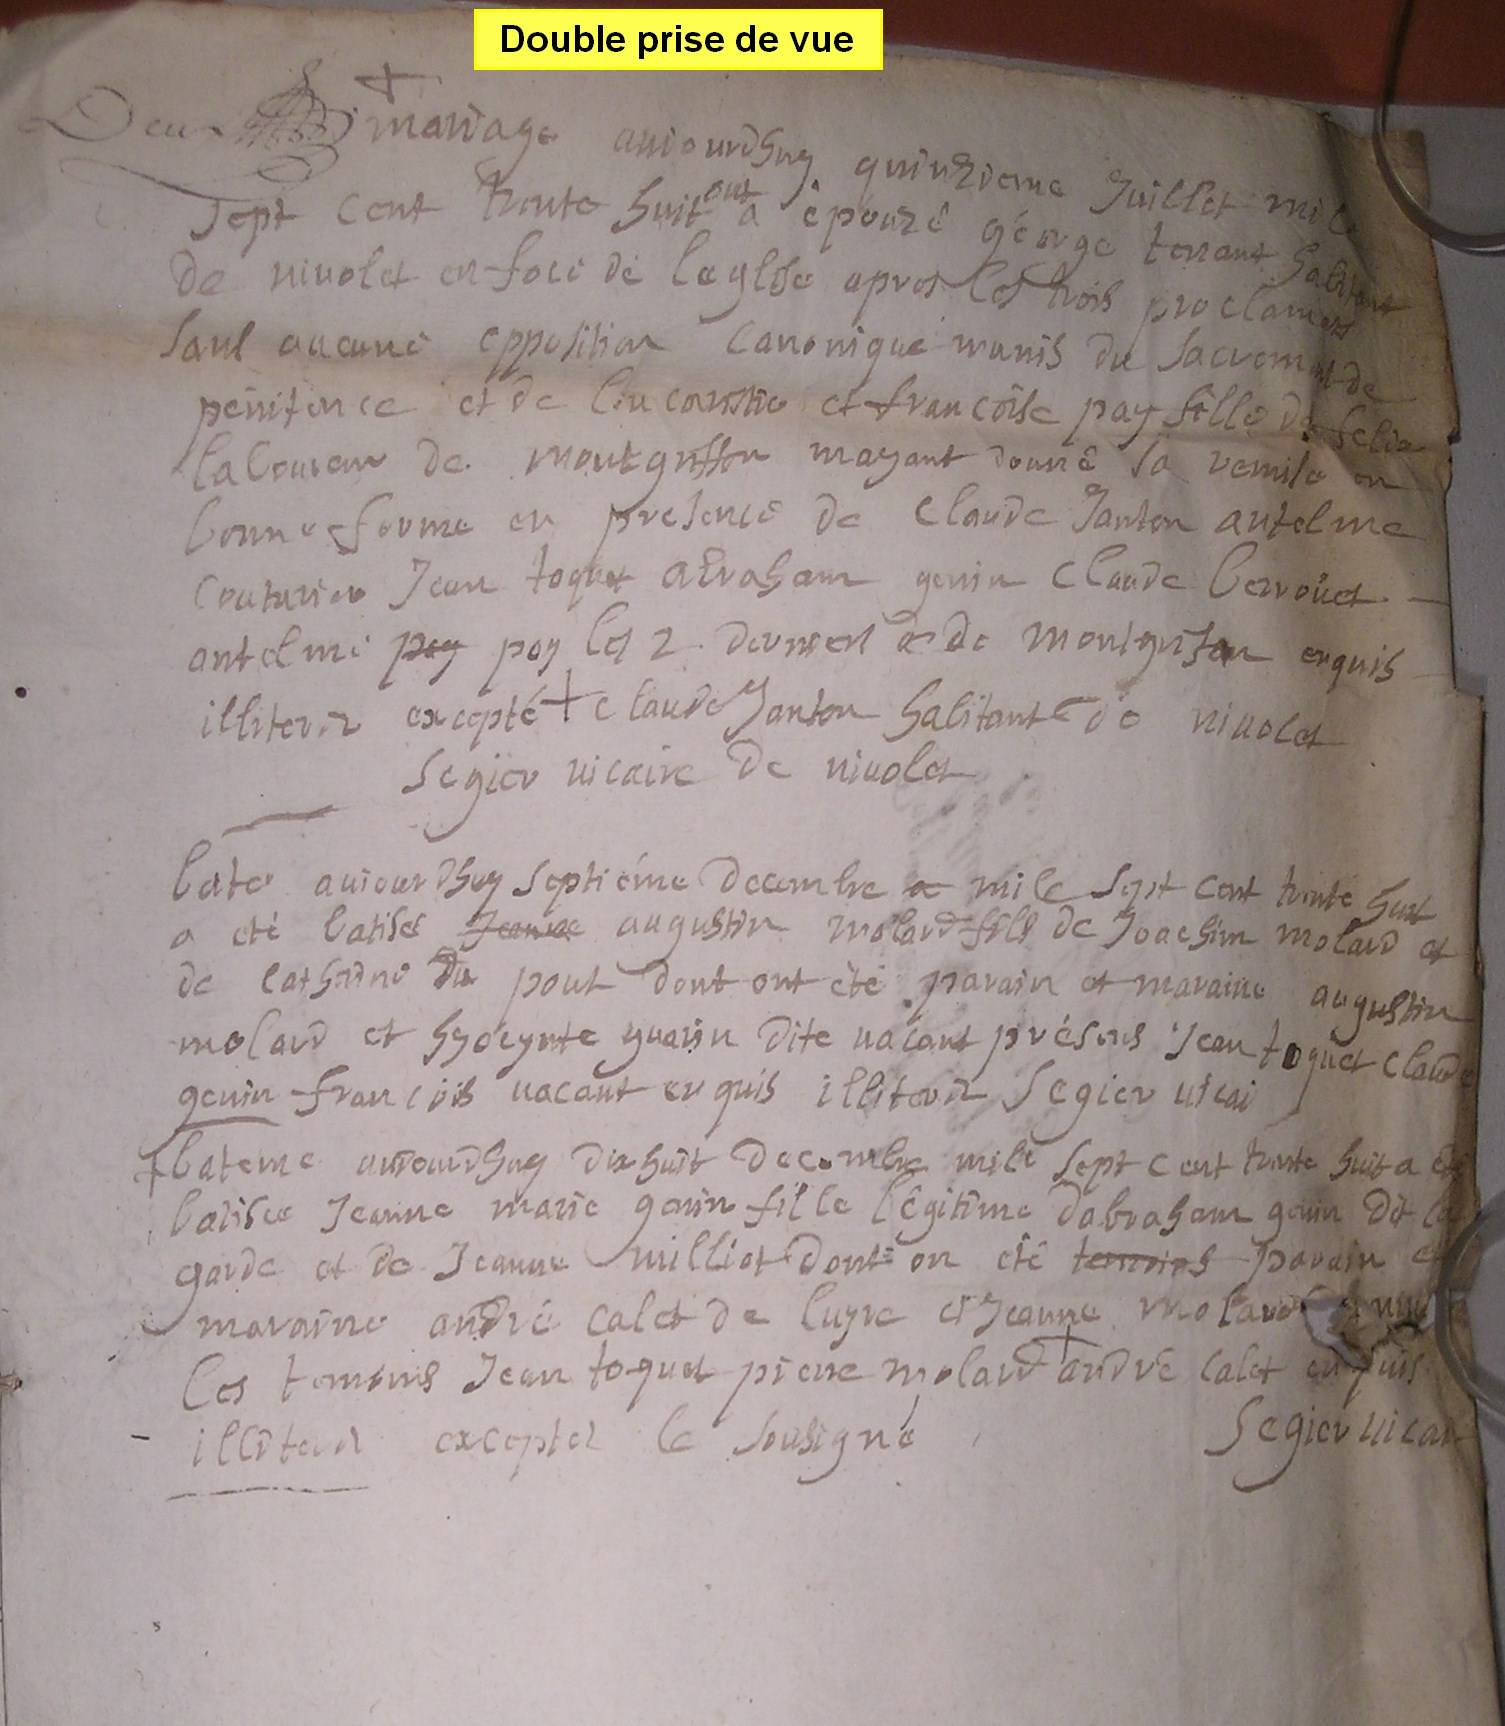 Double prise de vue
mariage aujourdhuy quinzieme Juillet mil
sept cent trente huit ont a épouzé géorge terrant habitant
de nivolet en face de leglise apres les trois proclamess
sans aucune opposition canonique munis du sacrement de
penitence et de leucaristie et francoise pay fille de felix
laboureur de montgriffon mayant donné sa remise en
bonne forme en presence de claude Janton antelme
couturier Jean toquet abraham genin claude berroüet
antelme pay poy les 2 derniers de de montgrifon enquis
illiterez excepté + claude Janton habitant de nivolet
Segier vicaire de nivolet
bate aujourdhuy septiéme decembre mile sept cent trente huit
a eté batisé Jeanne augustin molard fils de Joachim molard et
de catherine du pont dont ont été parain et maraine augustin
molard et hyacynte guarin dite vacant présens Jean toquet claude
genin francois vacant enquis illiterez Segier vicai
+ bateme aujourdhuy dix huit decembre mile sept cent trente huit a été
batisee Jeanne marie genin fille légitime dabraham genin dit la
garde et de Jeanne milliet dont on eté temoins parain et
maraine andré calet de luyre et Jeanne molard
les temoins Jean toquet pierre molard + andré calet enquis
illiterez exceptez le sousigné Segier vicai